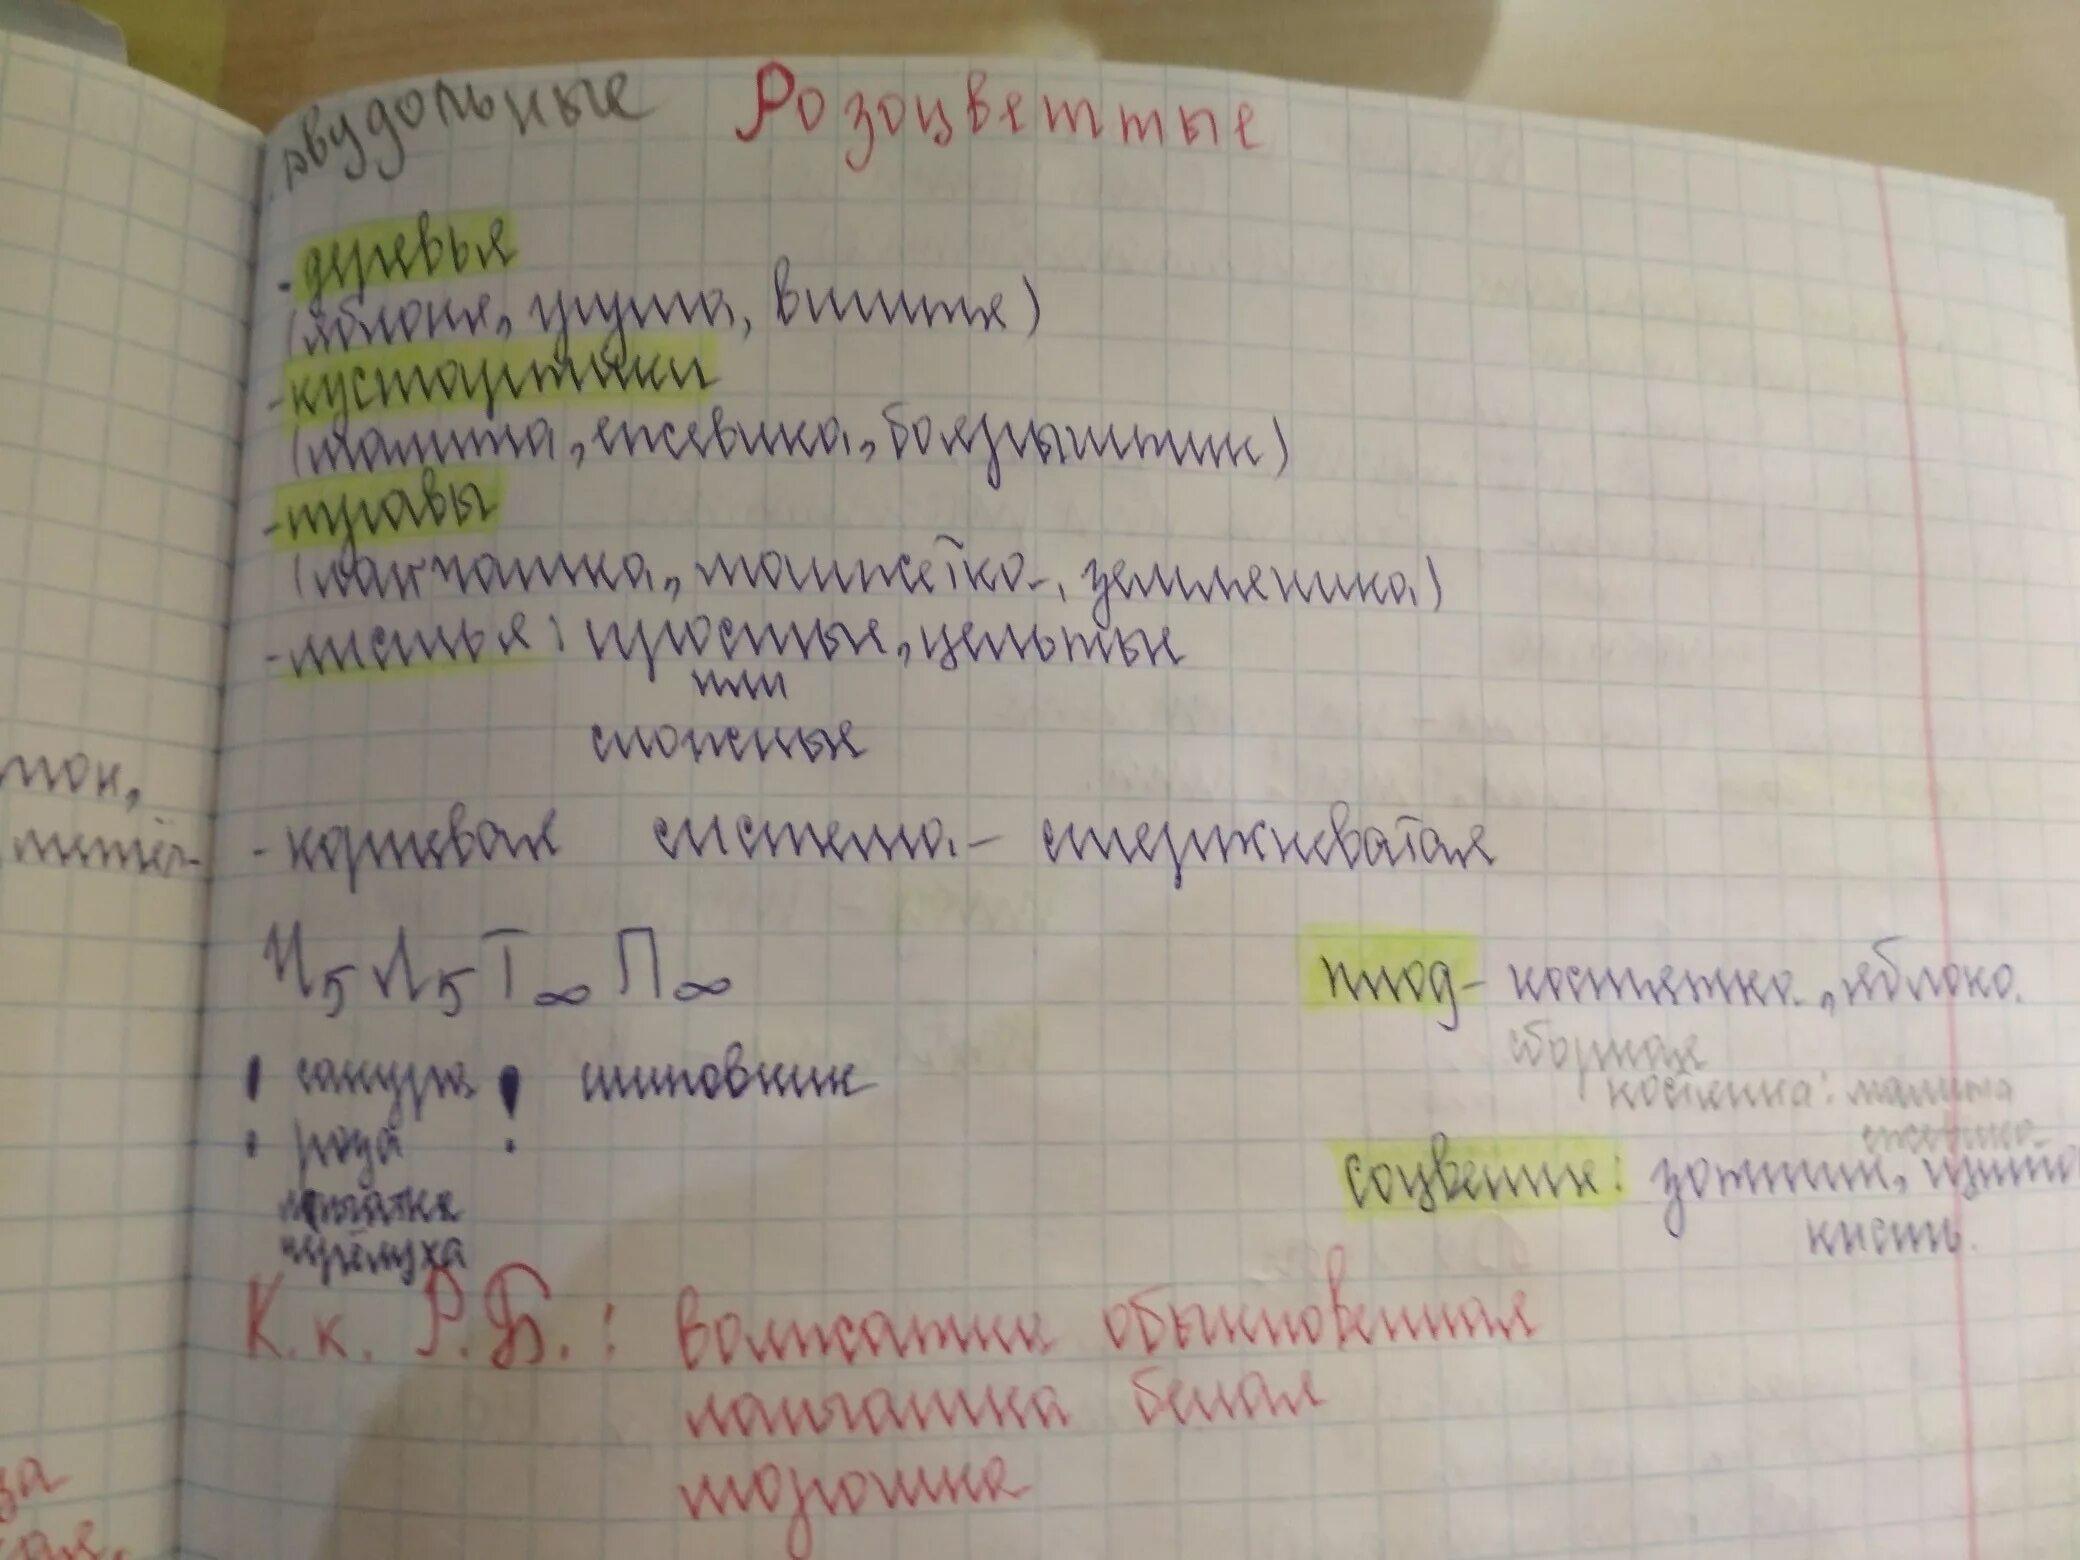 двудольные Розоцветные
- деревья
(яблоня, груша, вишня)
- кустарники
(малина, ежевика, боярышник)
- травы
(лапчатка, манжетка, земляника)
- листья: простые, цельные
или
сложные
- корневая система - стержневатая
Ч5 Л5 Т∞ П∞
плод - костянка, яблоко.
сборная
костянка: малина
ежевика
! сакура ! шиповник
роза
лапчатка
черёмуха
соцветие: зонтик, щито
кисть.
К.к. Р.Б.: волжанка обыкновенная
лапчатка белая
морошка
мон,
за